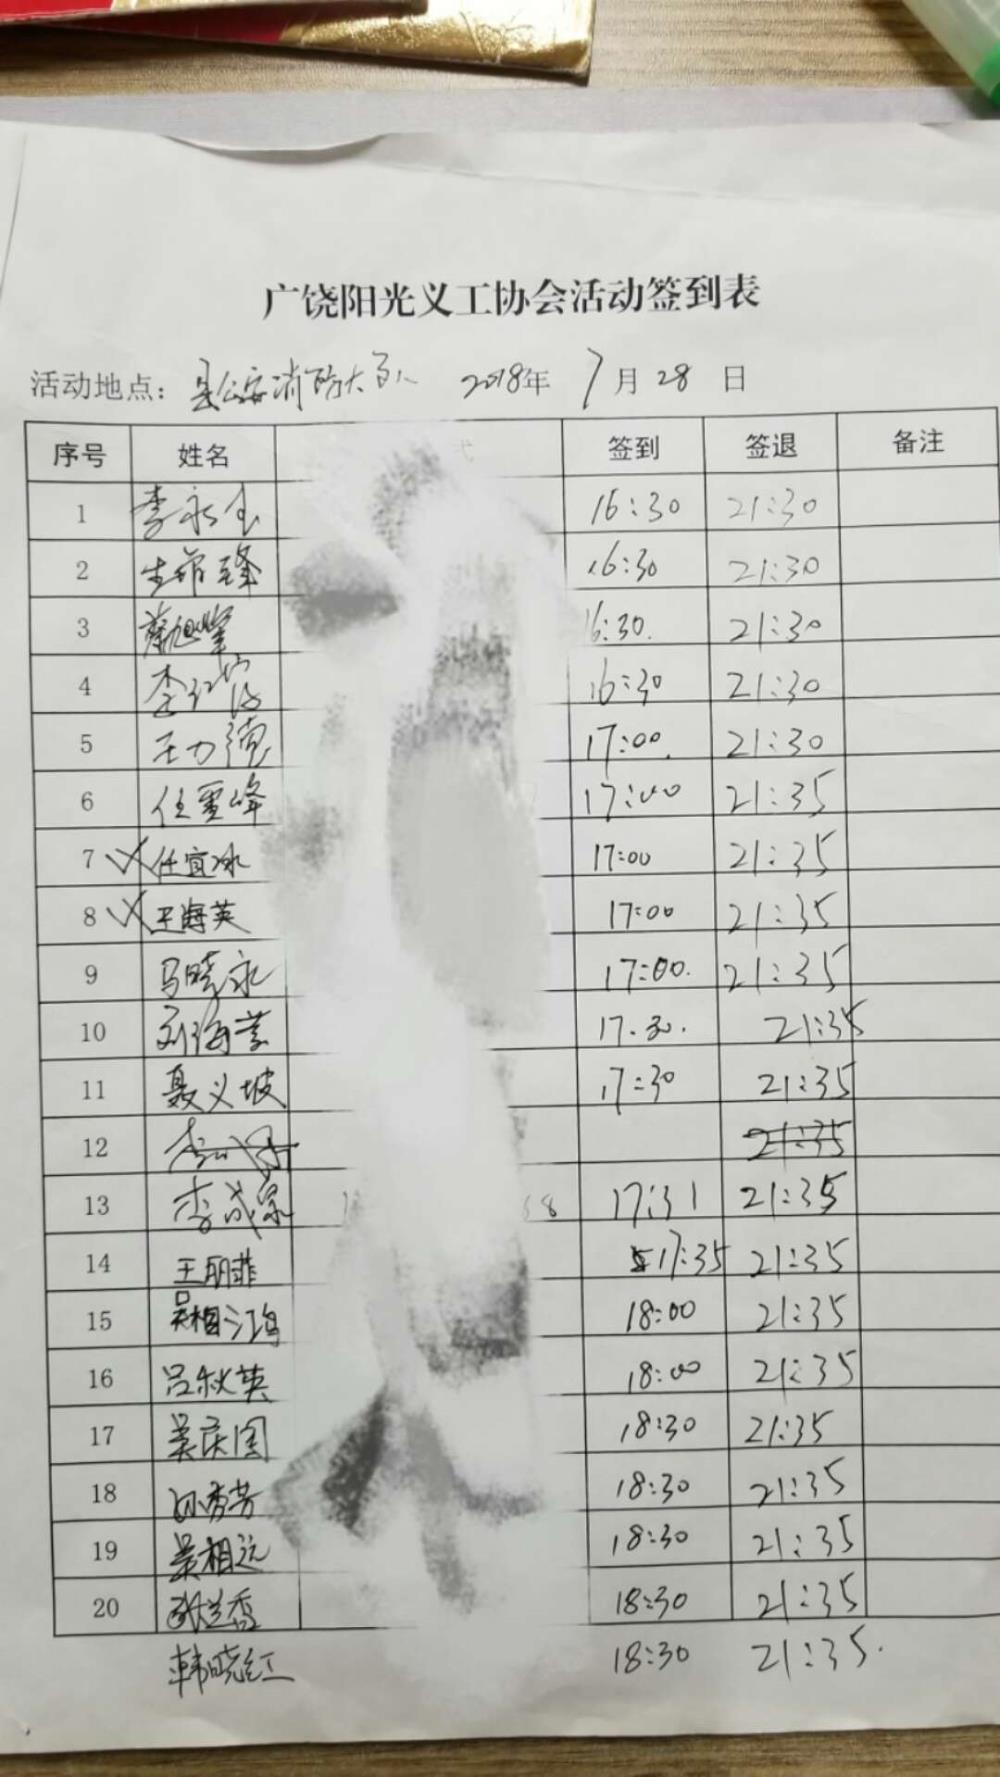 广饶阳光义工协会活动签到表
活动地点：县公安消防大队 2018年 7月 28日
序号 姓名 签到 签退 备注
1 李永 16:30 21:30
2 16:30 21:30
3 16:30. 21:30
4 李红 16:30 21:30
5 王力德 17:00. 21:30
6 任雪峰 17:00 21:35
7 任宜冰 17:00 21:35
8 王海英 17:00 21:35
9 马晓永 17:00. 21:35
10 刘海 17.30. 21:35
11 聂义坡 17:30 21:35
12 21:35
13 李成 17:31 21:35
14 王朋菲 17:35 21:35
15 吴相江 18:00 21:35
16 吕秋英 18:00 21:35
17 吴庆国 18:30 21:35
18 孙秀芳 18:30 21:35
19 吴相远 18:30 21:35
20 张兰香 18:30 21:35
韩晓红 18:30 21:35.